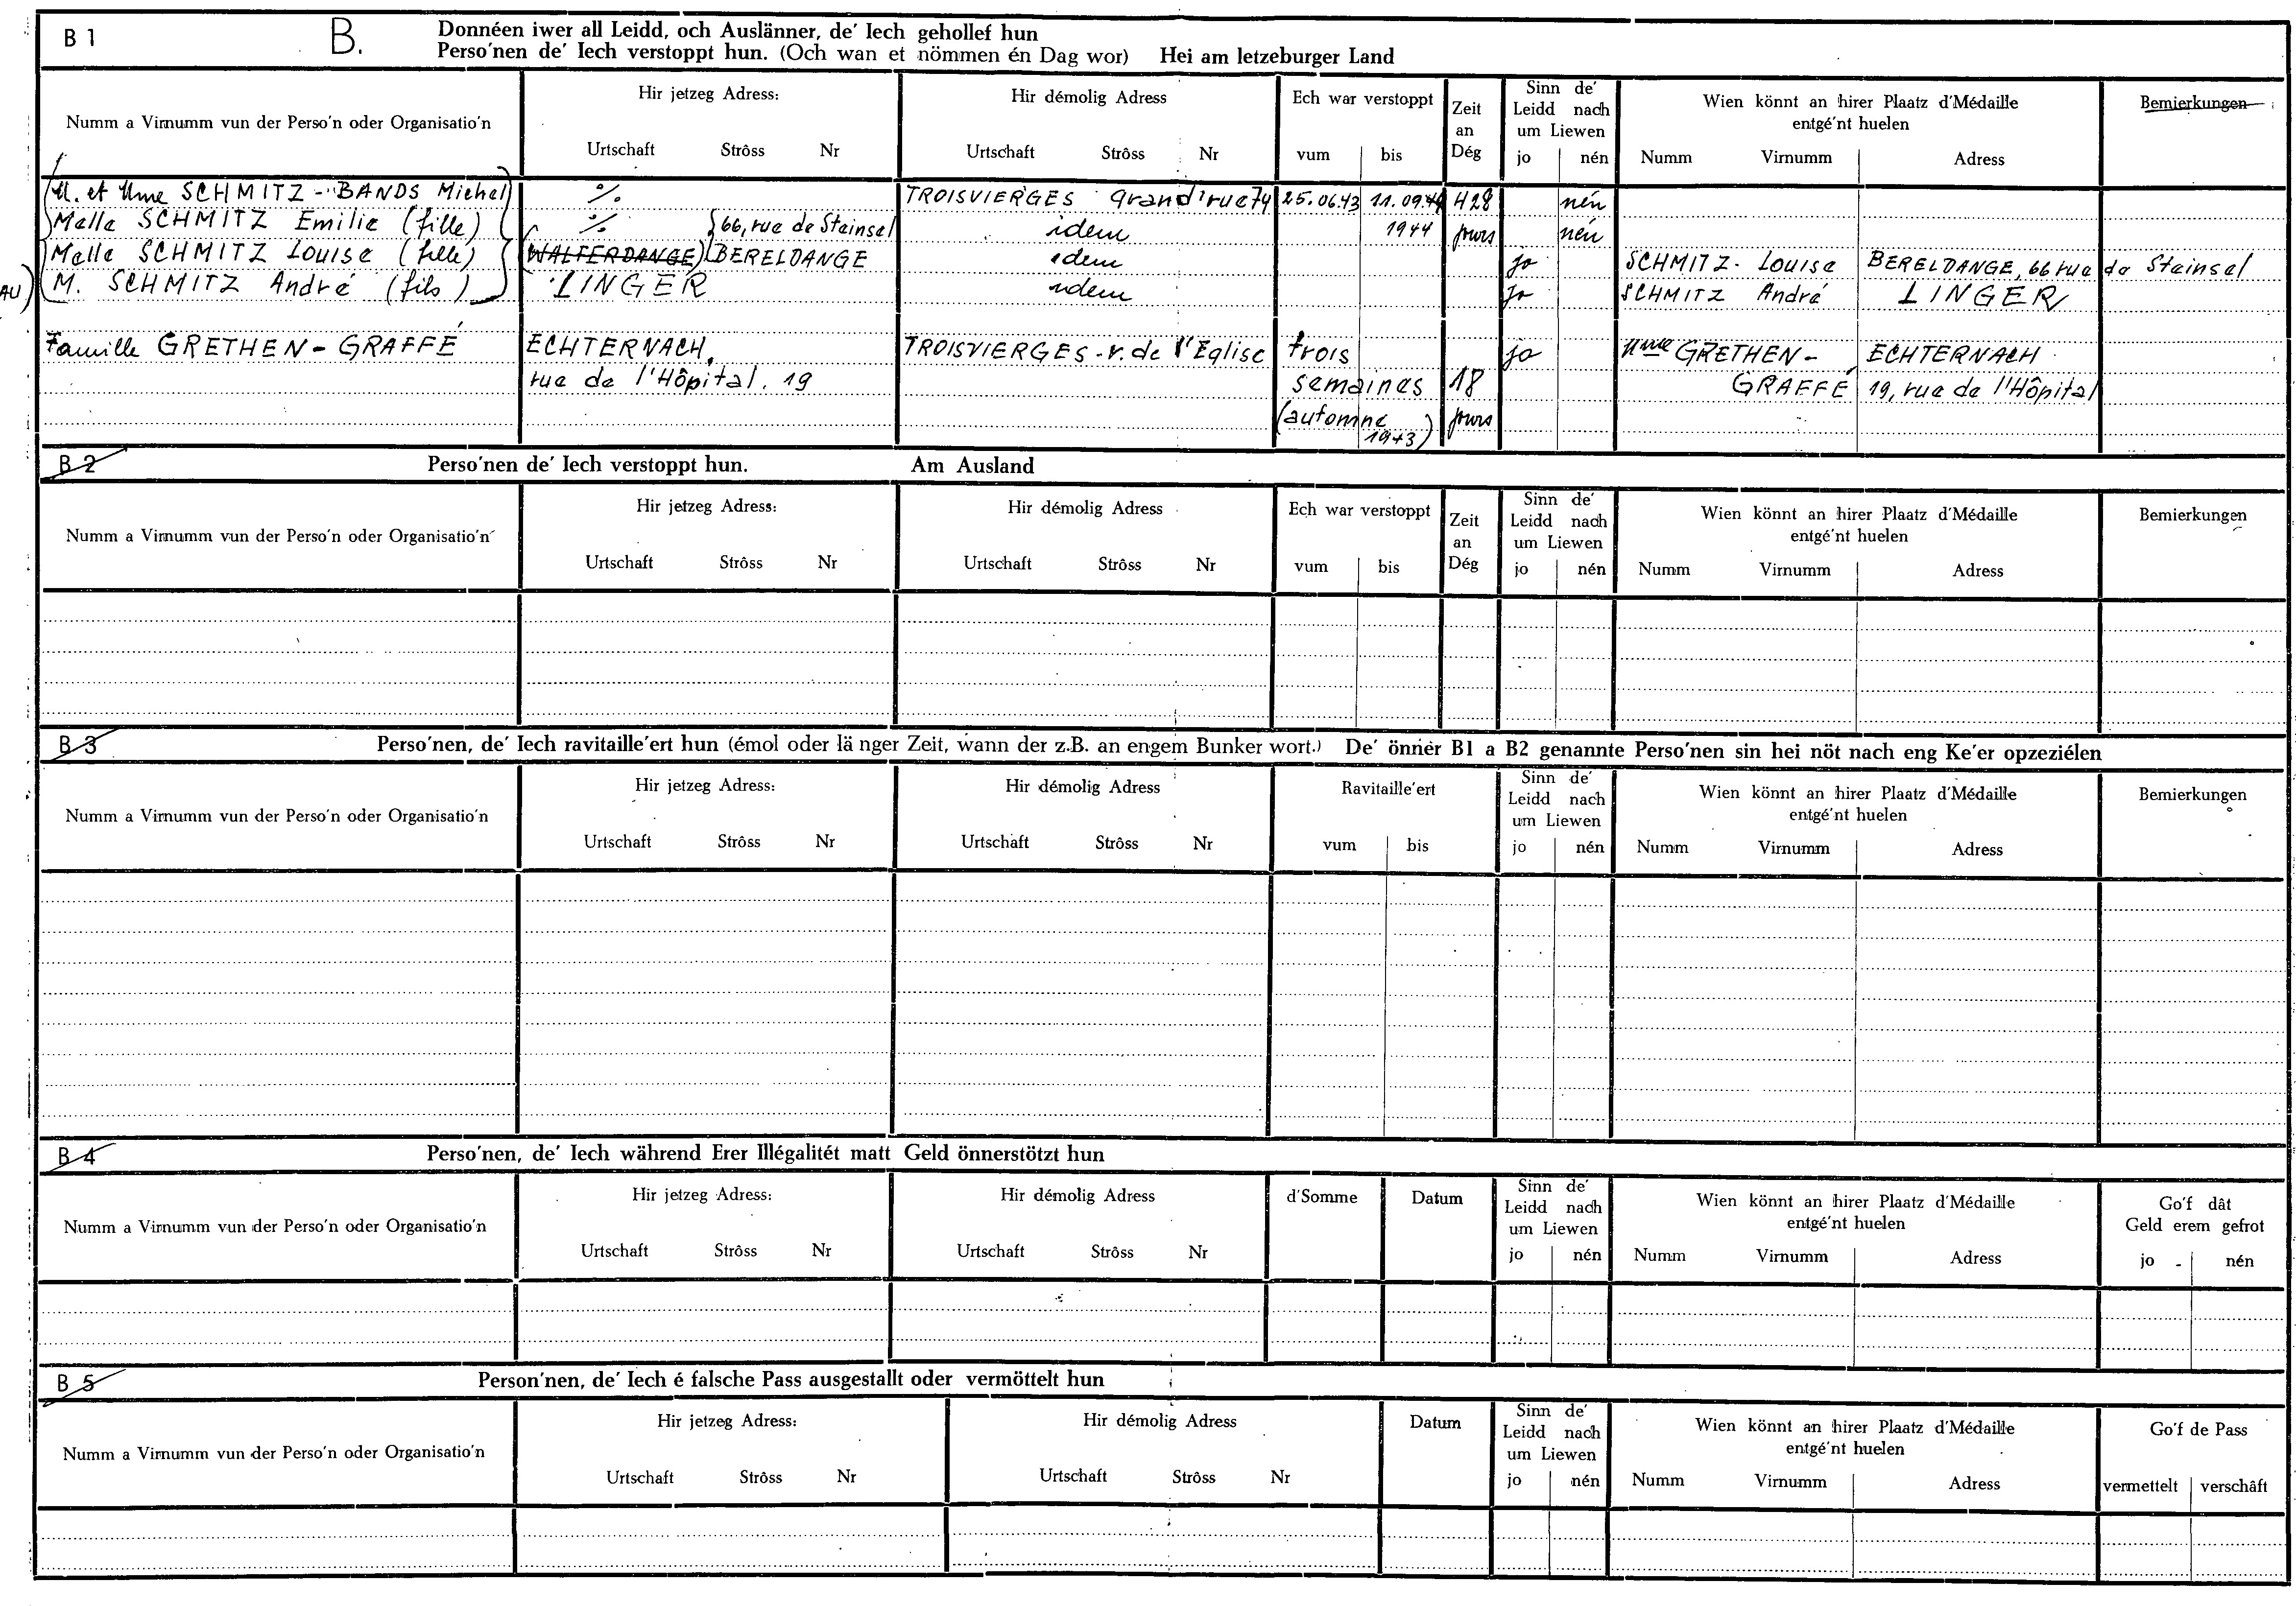 B 1 B. Donnéen iwer all Leidd, och Auslänner, de' Iech gehollef hun
Perso'nen de' Iech verstoppt hun. (Och wan et nömmen én Dag wor) Hei am letzeburger Land
Numm a Virnumm vun der Perso'n oder Organisatio'n
Hir jetzeg Adress:
Urtschaft Strôss Nr
Hir démolig Adress
Urtschaft Strôss Nr
Ech war verstoppt
vum bis
Zeit
an
Dég
Sinn de'
Leidd nach
um Liewen
jo nén
Wien könnt an hirer Plaatz d'Médaille
entgé'nt huelen
Numm Virnumm Adress
Bemierkungen
M. et Mme SCHMITZ - BANDS Michel % TROISVIERGES Grand'rue 74 25.06.43 11.09.44 428 nén
Melle SCHMITZ Emilie (fille) % 66, rue de Steinsel idem 1944 jours nén
Melle SCHMITZ Louise (fille) (WALFERDANGE) BERELDANGE idem jo SCHMITZ - Louise BERELDANGE, 66 rue de Steinsel
AU) M. SCHMITZ André (fils) LINGER idem jo SCHMITZ André LINGER
Famille GRETHEN - GRAFFÉ ECHTERNACH, TROISVIERGES - r. de l'Eglise trois jo Mme GRETHEN - ECHTERNACH
rue de l'Hôpital. 19 semaines 18 GRAFFÉ 19, rue de l'Hôpital
(automne jours
1943)
B 2 Perso'nen de' Iech verstoppt hun. Am Ausland
Numm a Virnumm vun der Perso'n oder Organisatio'n
Hir jetzeg Adress:
Urtschaft Strôss Nr
Hir démolig Adress
Urtschaft Strôss Nr
Ech war verstoppt
vum bis
Zeit
an
Dég
Sinn de'
Leidd nach
um Liewen
jo nén
Wien könnt an hirer Plaatz d'Médaille
entgé'nt huelen
Numm Virnumm Adress
Bemierkungen
B 3 Perso'nen, de' Iech ravitaille'ert hun (émol oder länger Zeit, wann der z.B. an engem Bunker wort.) De' önner B1 a B2 genannte Perso'nen sin hei nöt nach eng Ke'er opzeziélen
Numm a Virnumm vun der Perso'n oder Organisatio'n
Hir jetzeg Adress:
Urtschaft Strôss Nr
Hir démolig Adress
Urtschaft Strôss Nr
Ravitaille'ert
vum bis
Sinn de'
Leidd nach
um Liewen
jo nén
Wien könnt an hirer Plaatz d'Médaille
entgé'nt huelen
Numm Virnumm Adress
Bemierkungen
B 4 Perso'nen, de' Iech während Erer Illégalitét matt Geld önnerstötzt hun
Numm a Virnumm vun der Perso'n oder Organisatio'n
Hir jetzeg Adress:
Urtschaft Strôss Nr
Hir démolig Adress
Urtschaft Strôss Nr
d'Somme
Datum
Sinn de'
Leidd nach
um Liewen
jo nén
Wien könnt an hirer Plaatz d'Médaille
entgé'nt huelen
Numm Virnumm Adress
Go'f dât
Geld erem gefrot
jo nén
B 5 Person'nen, de' Iech é falsche Pass ausgestallt oder vermöttelt hun
Numm a Virnumm vun der Perso'n oder Organisatio'n
Hir jetzeg Adress:
Urtschaft Strôss Nr
Hir démolig Adress
Urtschaft Strôss Nr
Datum
Sinn de'
Leidd nach
um Liewen
jo nén
Wien könnt an hirer Plaatz d'Médaille
entgé'nt huelen
Numm Virnumm Adress
Go'f de Pass
vermettelt verschâft